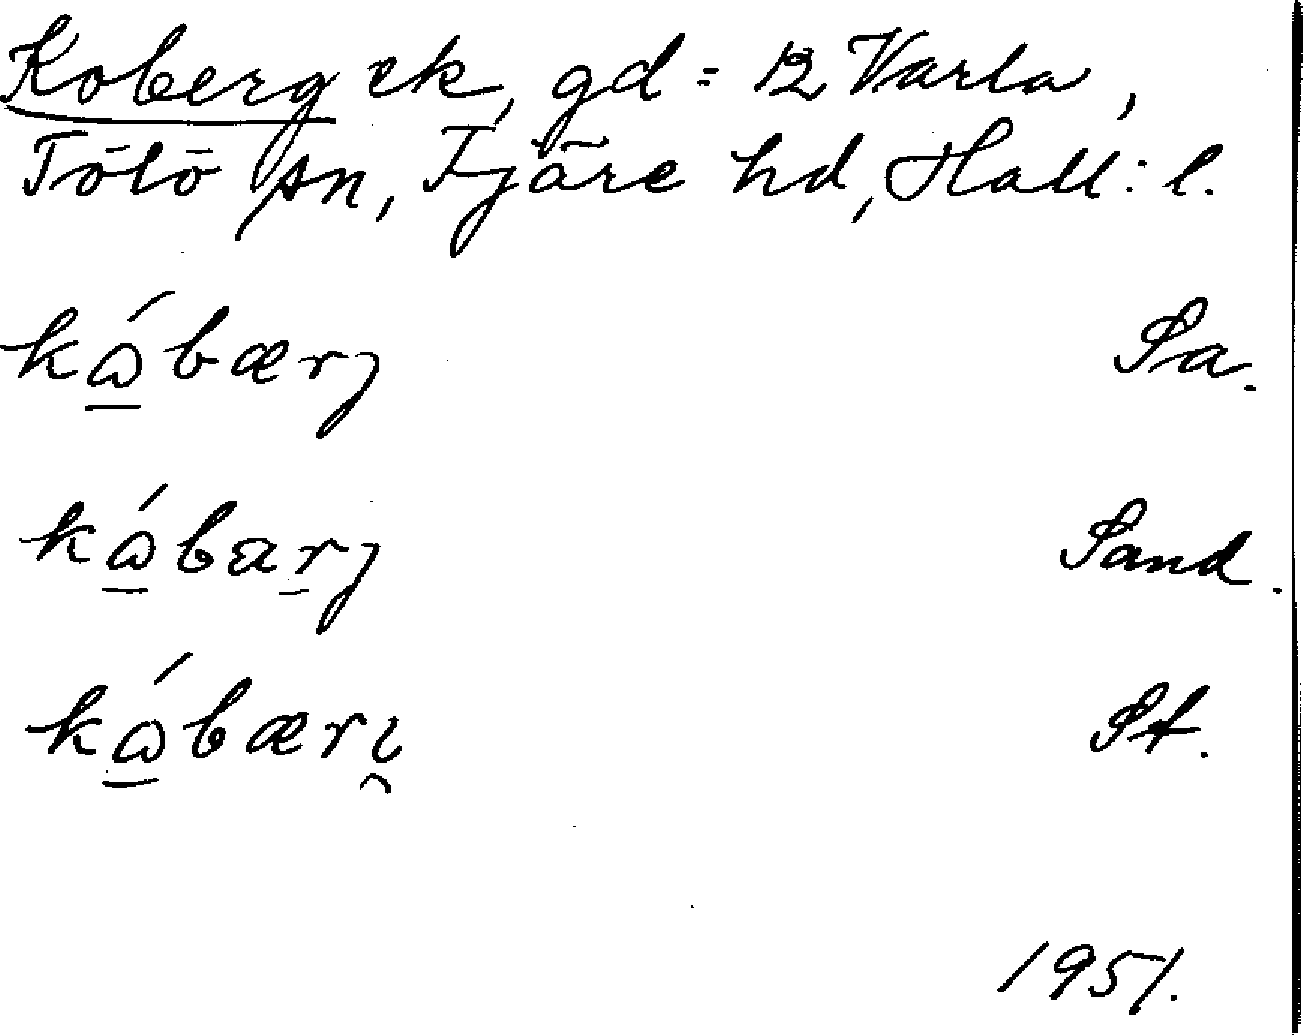 Koberg ek, gd = 12 Varla,
Tölö sn, Fjäre hd, Hall: l.
kώ̲bærj Sa.
kώ̲bar̲j Sand.
kώ̲bæri̯ St.
1951.